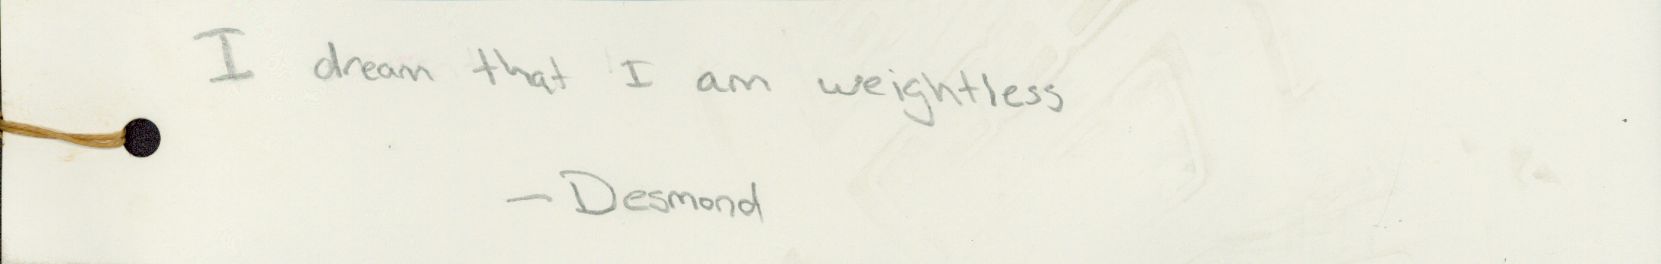 I dream that I am weightless
— Desmond